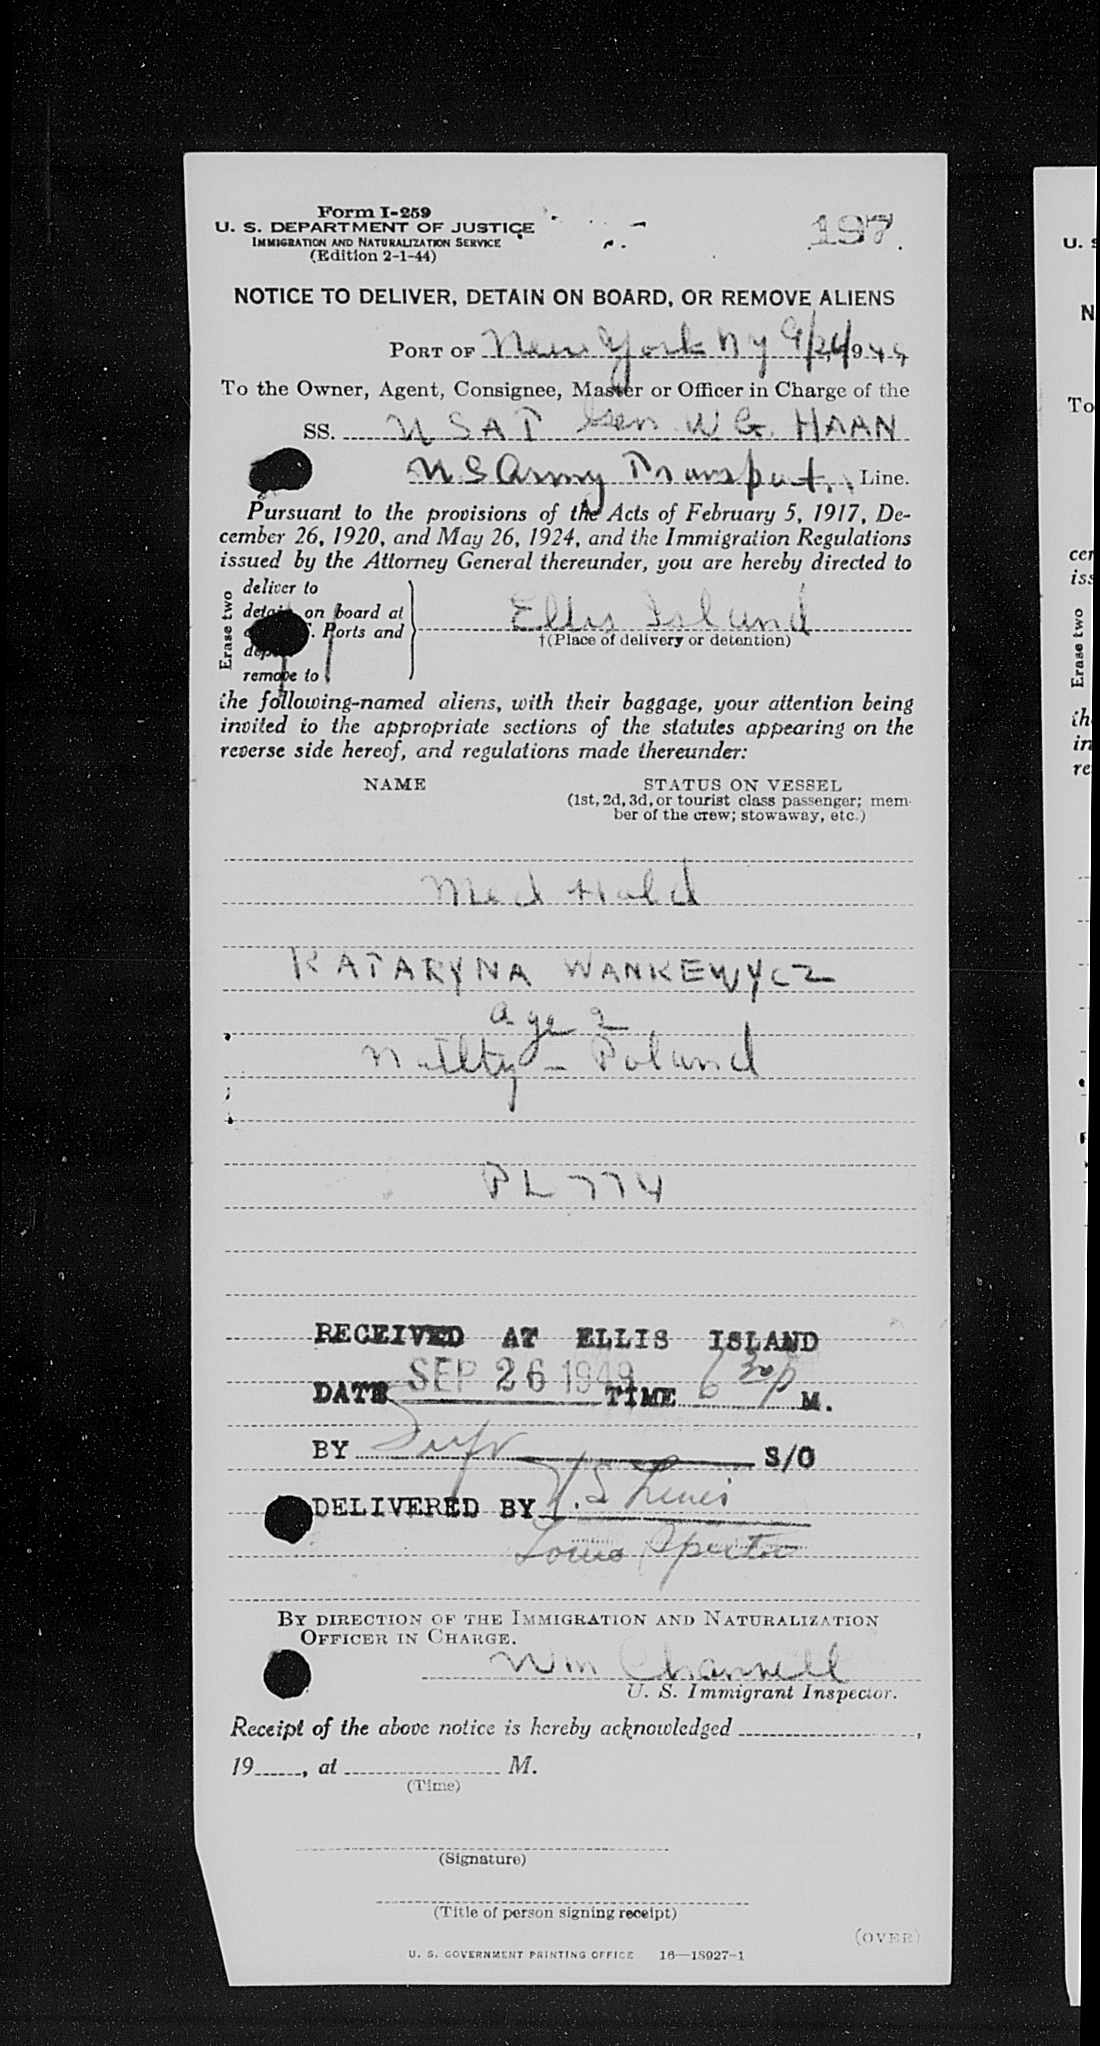 Form I-259
U. S. DEPARTMENT OF JUSTICE
IMMIGRATION AND NATURALIZATION SERVICE
(Edition 2-1-44)
197
NOTICE TO DELIVER, DETAIN ON BOARD, OR REMOVE ALIENS
PORT OF New York NY 9/26/1949
To the Owner, Agent, Consignee, Master or Officer in Charge of the
SS. USAT Gen W.G. HAAN
US Army Transport Line.
Pursuant to the provisions of the Acts of February 5, 1917, De-
cember 26, 1920, and May 26, 1924, and the Immigration Regulations
issued by the Attorney General thereunder, you are hereby directed to
Erase two
deliver to
detain on board at
Ports and
remove to
Ellis Island
†(Place of delivery or detention)
the following-named aliens, with their baggage, your attention being
invited to the appropriate sections of the statutes appearing on the
reverse side hereof, and regulations made thereunder:
NAME STATUS ON VESSEL
(1st, 2d, 3d, or tourist class passenger; mem-
ber of the crew; stowaway, etc.)
Med Hold
KATARYNA WANKEWYCZ
age 2
Natlty - Poland
PL 774
RECEIVED AT ELLIS ISLAND
DATE SEP 26 1949 TIME 6 30 P M.
BY S/O
DELIVERED BY
BY DIRECTION OF THE IMMIGRATION AND NATURALIZATION
OFFICER IN CHARGE.
Wm Channell
U. S. Immigrant Inspector.
Receipt of the above notice is hereby acknowledged ,
19 , at M.
(Time)
(Signature)
(Title of person signing receipt)
(OVER)
U. S. GOVERNMENT PRINTING OFFICE 16—18927-1